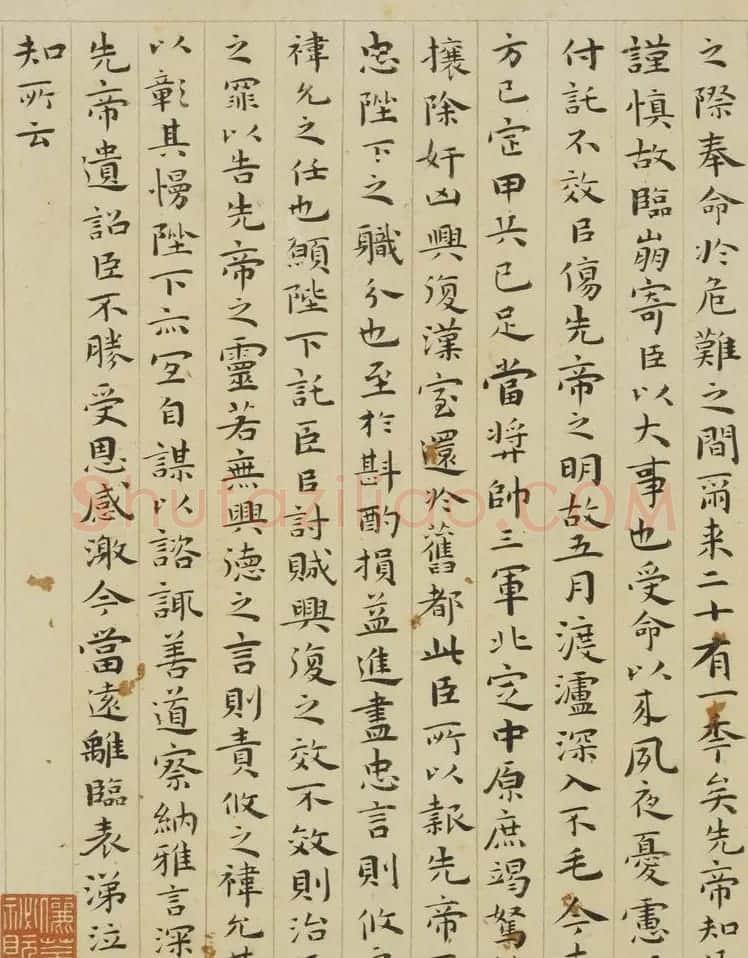 之際奉命於危難之間爾来二十有一季矣先帝知
謹慎故臨崩寄臣以大事也受命以来夙夜憂慮
付託不效臣傷先帝之明故五月渡瀘深入不毛今
方已定甲兵已足當奬帥三軍北定中原庶竭駑
攘除奸凶興復漢室還於舊都此臣所以報先帝
忠陛下之職分也至於斟酌損益進盡忠言則攸
禕允之任也願陛下託臣臣討賊興復之效不效則治
之罪以告先帝之靈若無興德之言則責攸之禕允
以彰其慢陛下亦宜自謀以諮諏善道察納雅言深
先帝遺詔臣不勝受恩感激今當遠離臨表涕泣
知所云
Shufaziliao.COM